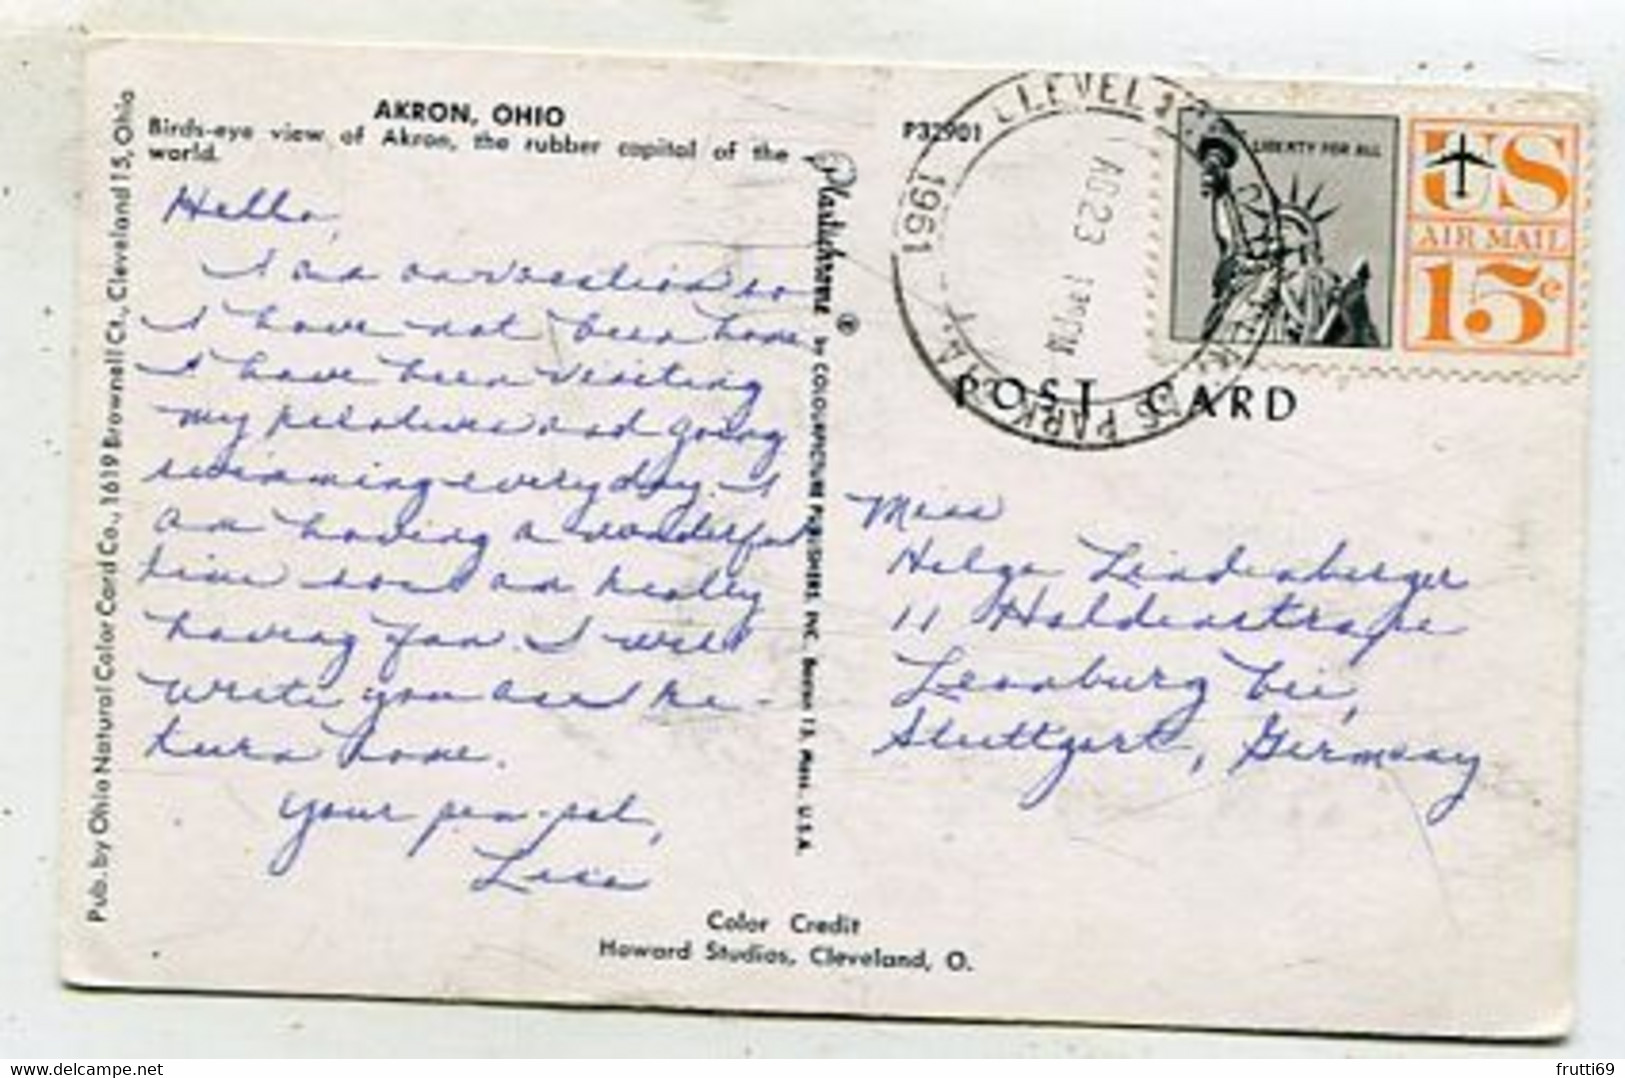 AKRON, OHIO
Birds-eye view of Akron, the rubber capital of the
world.
Hello,
I am on vacation so
I have not been home.
I have been visiting
my relatives and going
swimming everyday. I
am having a wonderful
time and am really
having fun. I will
write you as I re-
turn home.
Your pen-pal,
Lisa
Pub. by Ohio Natural Color Card Co., 1619 Brownell Ct., Cleveland 15, Ohio
Plastichrome ® by COLOURPICTURE PUBLISHERS, INC. Boston 15, Mass. U.S.A.
Color Credit
Howard Studios, Cleveland, O.
P32901
CLEVEL
1961
AUG 23
PM
LIBERTY FOR ALL
US
AIR MAIL
15c
POST CARD
Miss
Helga Lindenberger
11 Haldenstraße
Leonburg bei,
Stuttgart, Germany
frutti69